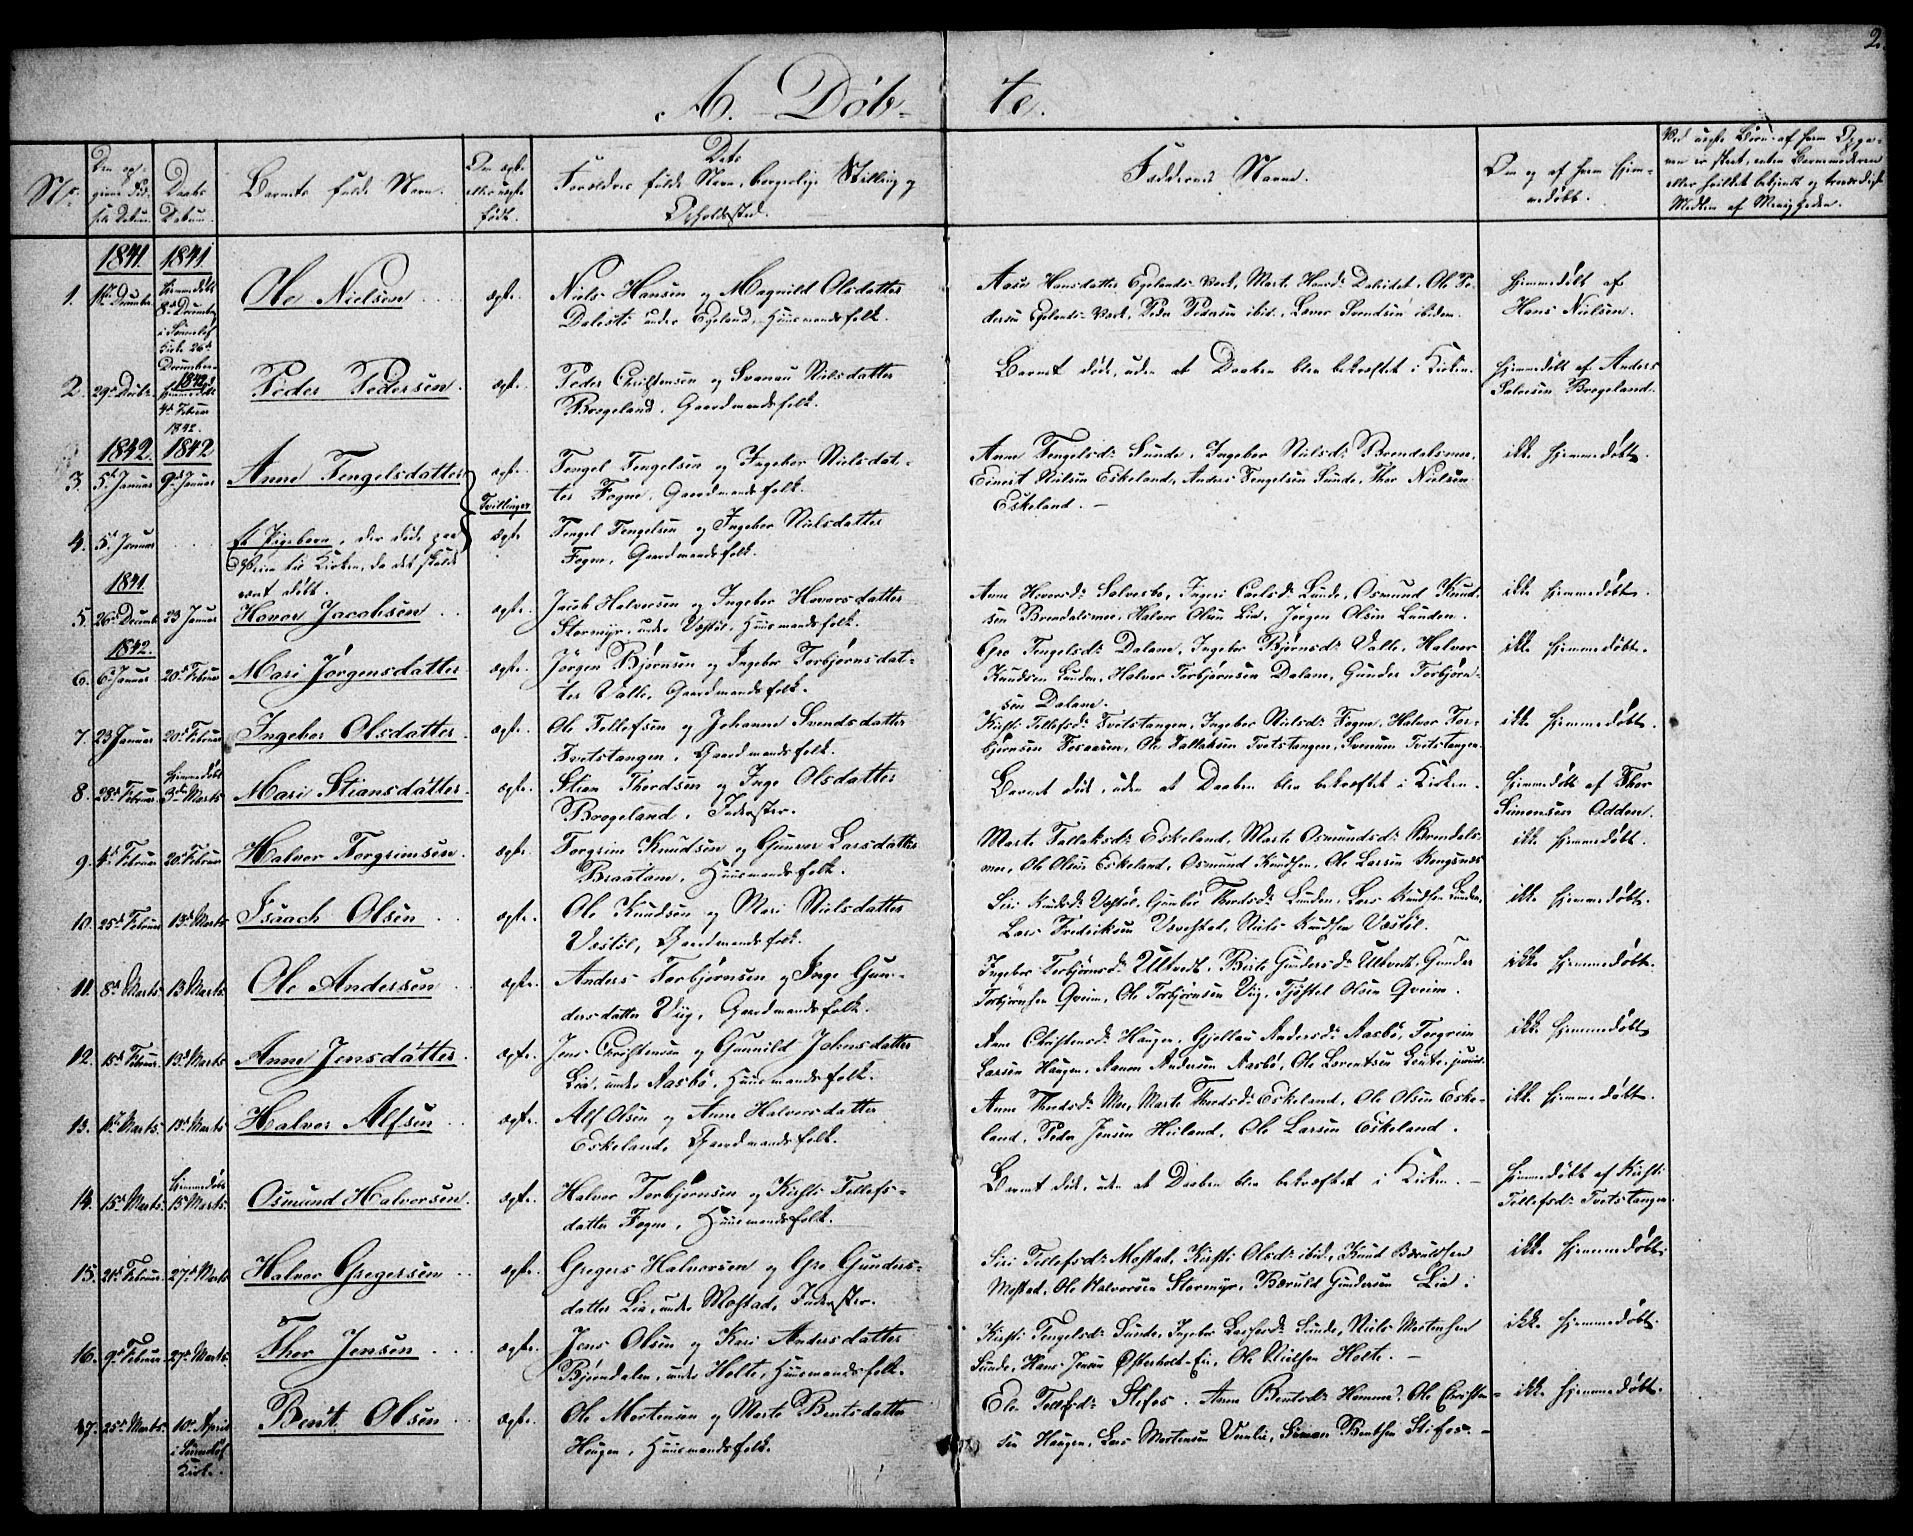 2.
A. Døb- te.
No. Den op- givne Fød- sels Datum. Daabs Datum. Barnets fulde Navn. Om ægte eller uægte født. Dets Forældres fulde Navn, borgerlige Stilling og Opholdssted. Faddernes Navne. Om og af hvem hjem- medøbt.
1841 1841
1. 1ste Decembr hjemmedøbt 8de Decembr i Søndeløf Kirke 26de Decembr Ole Nielsen ægte. Niels Hansen og Magnild Olsdatter
Dalsto under Egeland, Huusmandsfolk.
Aase Hansdatter Egelands Værk, Marte Hansd. Dalstoe, Ole Pe-
dersen Egelands Værk, Peder Pedersen ibid., Svendsen ibidem.
Hjemmedøbt af
Hans Nielsen.
2. 29de Decbr. 1842 hjemmedøbt 4de Februar 1842. Peder Pedersen. ægte. Peder Christensen og Nielsdatter
Brægeland, Gaardmandsfolk.
Barnet døde, uden at Daaben blev bekræftet i Kirken.
Hjemmedøbt af Anders
Salvesen Brægeland.
1842. 1842
3. 5te Januar 9de Januar Anne Tengelsdatter ægte Tengel Tengelsen og Ingebor Nielsdat-
ter Fogne, Gaardmandsfolk.
Anne Tengelsd. Sunde, Ingebor Nielsd. Brendalsmoe,
Nielsen Eskeland, Anders Tengelsen Sunde, Thor Nielsen
Eskeland. —
ikke hjemmedøbt.
Tvillinger
4. 5te Januar et Pigebarn, der døde paa
Veien til Kirken, da det skulde
vært døbt.
ægte Tengel Tengelsen og Ingebor Nielsdatter
Fogne, Gaardmandsfolk.
1841
5. 26de Decemb. 23 Januar Hovor Jacobsen ægte. Jacob Halvorsen og Ingebor Hovorsdatter
Stormyr, under Væstøl, Huusmandsfolk.
Anne Hovorsd. Salvesbo, Ingeri Carlsd. Lunde, Osmund Knud-
sen Brendalsmoe, Halvor Olsen Lia, Jørgen Olsen Lunden.
ikke hjemmedøbt.
1842.
6. 6te Januar 20de Februar Mari Jørgensdatter ægte. Jørgen Bjørnsen og Ingebor Torbjørnsdat-
ter Valle, Gaardmandsfolk.
Gro Tengelsd. Dalane, Ingebor Bjørnsd. Valle, Halvor
Knudsen Lunden, Halvor Torbjørnsen Dalane, Gunder Torbjørn-
sen Dalane.
ikke hjemmedøbt.
7. 23 Januar 20de Februar Ingebor Olsdatter ægte. Ole Tellefsen og Johanne Svendsdatter
Tvetstangen, Gaardmandsfolk.
Kirsti Tellefsd. Tvetstangen, Ingebor Nielsd. Fogne, Halvor Tor-
bjørnsen Fosaasen, Ole Tallaksen Tvetstangen, Svenum Tvetstangen.
ikke hjemmedøbt.
8. 28de Februar hjemmedøbt 3de Marts Mari Stiansdatter. ægte. Stian Thordsen og Inge Olsdatter
Brægeland, Inderster.
Barnet døde, uden at Daaben blev bekræftet i Kirken.
Hjemmedøbt af Thor
Simonsen Odden.
9. 4de Februar 20de Februar Halvor Torgrimsen. ægte. Torgrim Knudsen og Gunvor Larsdatter
Braatane, Huusmandsfolk.
Marte Tallaksd. Eskeland, Marte Osmundsd. Brendals-
moe, Ole Olsen Eskeland, Osmund Knudsen, Ole Larsen
ikke hjemmedøbt.
10. 25de Februar 13de Marts Isaach Olsen ægte. Ole Knudsen og Mari Nielsdatter
Væstøl, Gaardmandsfolk.
Siri Knudsd. Væstøl, Gunbor Thordsd. Lunden, Lars Knudsen Lunden,
Lars Fredriksen Vævestad, Niels Knudsen Væstøl.
ikke hjemmedøbt.
11. 8de Marts 13 Marts Ole Andersen ægte. Anders Torbjørnsen og Inge Gun-
dersdatter Viig, Gaardmandsfolk.
Ingebor Torbjørnsd. Ulltvedt, Berte Gundersd. Ulltvedt, Gunder
Torbjørnsen Qveim, Ole Torbjørnsen Viig, Tjøstel Olsen Qveim.
ikke hjemmedøbt.
12. 15de Februar 13de Marts Anne Jensdatter. ægte. Jens Christensen og Gunnild Johnsdatter
Lia, under Aasbø, Huusmandsfolk.
Anne Christensd. Haugen, Andersd. Aasbø, Torgrim
Larsen Haugen, Aanon Andersen Aasbø, Ole Lorentsen
ikke hjemmedøbt
13. 1ste Marts. 13de Marts Halvor Alfsen ægte. Alf Olsen og Anne Halvorsdatter
Eskeland, Gaardmandsfolk.
Anne Thordsd. Moe, Marte Thordsd. Eskeland, Ole Olsen Eske-
land, Peder Jensen Heiland, Ole Larsen Eskeland.
ikke hjemmedøbt.
14. 15de Marts. hjemmedøbt 15 Marts. Osmund Halvorsen. ægte. Halvor Torbjørnsen og Kirsti Tellefs-
datter Fogne, Huusmandsfolk.
Barnet døde, uden at Daaben blev bekræftet i Kirken. —
Hjemmedøbt af Kirsti
Tellefsd. Tvetstangen.
15. 21de Februar. 27de Marts Halvor Gregersen ægte. Gregers Halvorsen og Gro Gunders-
datter Lia, under Mostad, Inderster.
Siri Tellefsd. Mostad, Kirsti Olsd. ibid., Knud Bæruldsen
Mostad, Ole Halvorsen Stormyr, Bæruld Gundersen Lia.
ikke hjemmedøbt.
16. 9de Februar 27de Marts. Thor Jensen ægte. Jens Olsen og Kari Andersdatter
Bjørndalen, under Holte, Huusmandsfolk.
Kirsti Tengelsd. Sunde, Ingebor Larsd. Sunde, Niels Mortensen
Sunde, Hans Jensen Østerholt-Eie, Ole Nielsen Holte. —
ikke hjemmedøbt.
17. 25de Marts. 10de April i Søndeløf Kirke. Bent Olsen ægte. Ole Mortensen og Marte Bentsdatter
Haugen, Huusmandsfolk.
Tellefsd. Stifos, Anne Bentsd. Homme, Ole Christen-
sen Haugen, Lars Mortensen Simon Bentsen Stifos. —
ikke hjemmedøbt.